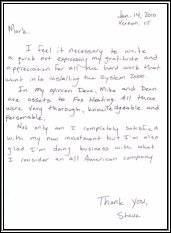 Jan. 14, 2010
Vernon, CT
Mark,
I feel it necessary to write
a quick not expressing my gratitude and
appreciation for all the hard work that
went into installing the system 2000.
In my opinion Dave, Mike and Dean
are assets to Fox Heating. All three
were very thorough, knowledgeable and
personable.
Not only am I completely satisfied
with my new investment but I'm also
glad I'm doing business with what
I consider an all American company
Thank you,
Steve